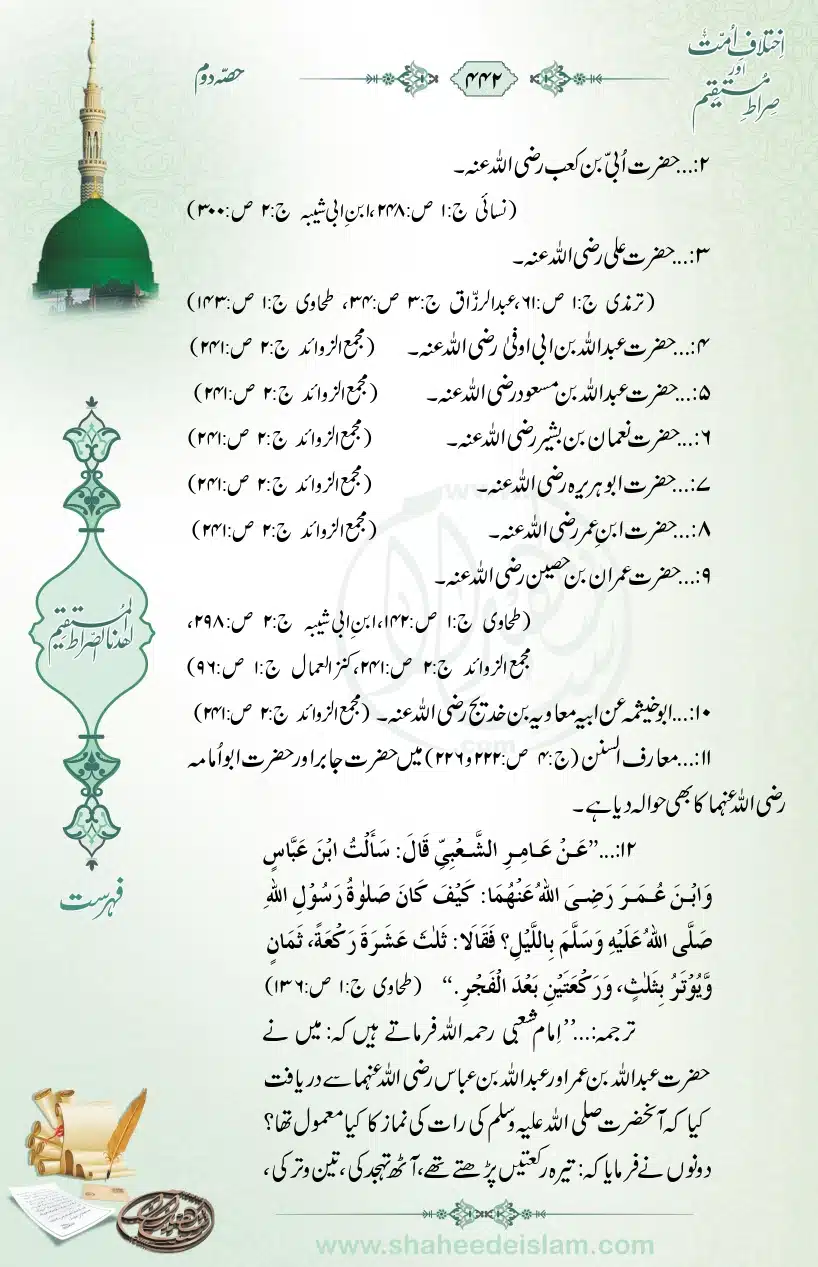 اِختلافِ اُمّت
اور
صراطِ مستقیم
۴۴۲
حصّہ دوم
۲:...حضرت اُبیّ بن کعب رضی اللہ عنہ۔
(نسائی ج:۱ ص:۲۴۸، ابنِ ابی شیبہ ج:۲ ص:۳۰۰)
۳:...حضرت علی رضی اللہ عنہ۔
(ترمذی ج:۱ ص:۶۱، عبدالرزّاق ج:۳ ص:۳۴، طحاوی ج:۱ ص:۱۴۳)
۴:...حضرت عبداللہ بن ابی اوفیٰ رضی اللہ عنہ۔ (مجمع الزوائد ج:۲ ص:۲۴۱)
۵:...حضرت عبداللہ بن مسعود رضی اللہ عنہ۔ (مجمع الزوائد ج:۲ ص:۲۴۱)
۶:...حضرت نعمان بن بشیر رضی اللہ عنہ۔ (مجمع الزوائد ج:۲ ص:۲۴۱)
۷:...حضرت ابو ہریرہ رضی اللہ عنہ۔ (مجمع الزوائد ج:۲ ص:۲۴۱)
۸:...حضرت ابنِ عمر رضی اللہ عنہ۔ (مجمع الزوائد ج:۲ ص:۲۴۱)
۹:...حضرت عمران بن حصین رضی اللہ عنہ۔
(طحاوی ج:۱ ص:۱۴۲، ابنِ ابی شیبہ ج:۲ ص:۲۹۸،
مجمع الزوائد ج:۲ ص:۲۴۱، کنز العمال ج:۱ ص:۹۶)
۱۰:...ابو خیثمہ عن ابیہ معاویہ بن خدیج رضی اللہ عنہ۔ (مجمع الزوائد ج:۲ ص:۲۴۱)
۱۱:...معارف السنن (ج:۴ ص:۲۲۲ و ۲۲۶) میں حضرت جابر اور حضرت ابو اُمامہ
رضی اللہ عنہما کا بھی حوالہ دیا ہے۔
۱۲:...”عَنْ عَامِرِ الشَّعْبِيِّ قَالَ: سَأَلْتُ ابْنَ عَبَّاسٍ
وَابْنَ عُمَرَ رَضِيَ اللهُ عَنْهُمَا: كَيْفَ كَانَ صَلٰوةُ رَسُوْلِ اللهِ
صَلَّى اللهُ عَلَيْهِ وَسَلَّمَ بِاللَّيْلِ؟ فَقَالَا: ثَلٰثَ عَشَرَةَ رَكْعَةً، ثَمَانٍ
وَّيُوْتَرُ بِثَلٰثٍ، وَرَكْعَتَيْنِ بَعْدَ الْفَجْرِ.“ (طحاوی ج:۱ ص:۱۳۶)
ترجمہ:...”اِمام شعبی رحمہ اللہ فرماتے ہیں کہ: میں نے
حضرت عبداللہ بن عمر اور عبداللہ بن عباس رضی اللہ عنہما سے دریافت
کیا کہ آنحضرت صلی اللہ علیہ وسلم کی رات کی نماز کا کیا معمول تھا؟
دونوں نے فرمایا کہ: تیرہ رکعتیں پڑھتے تھے، آٹھ تہجد کی، تین وتر کی،
اھدنا الصّراط المُستقیم
فہرست
www.shaheedeislam.com